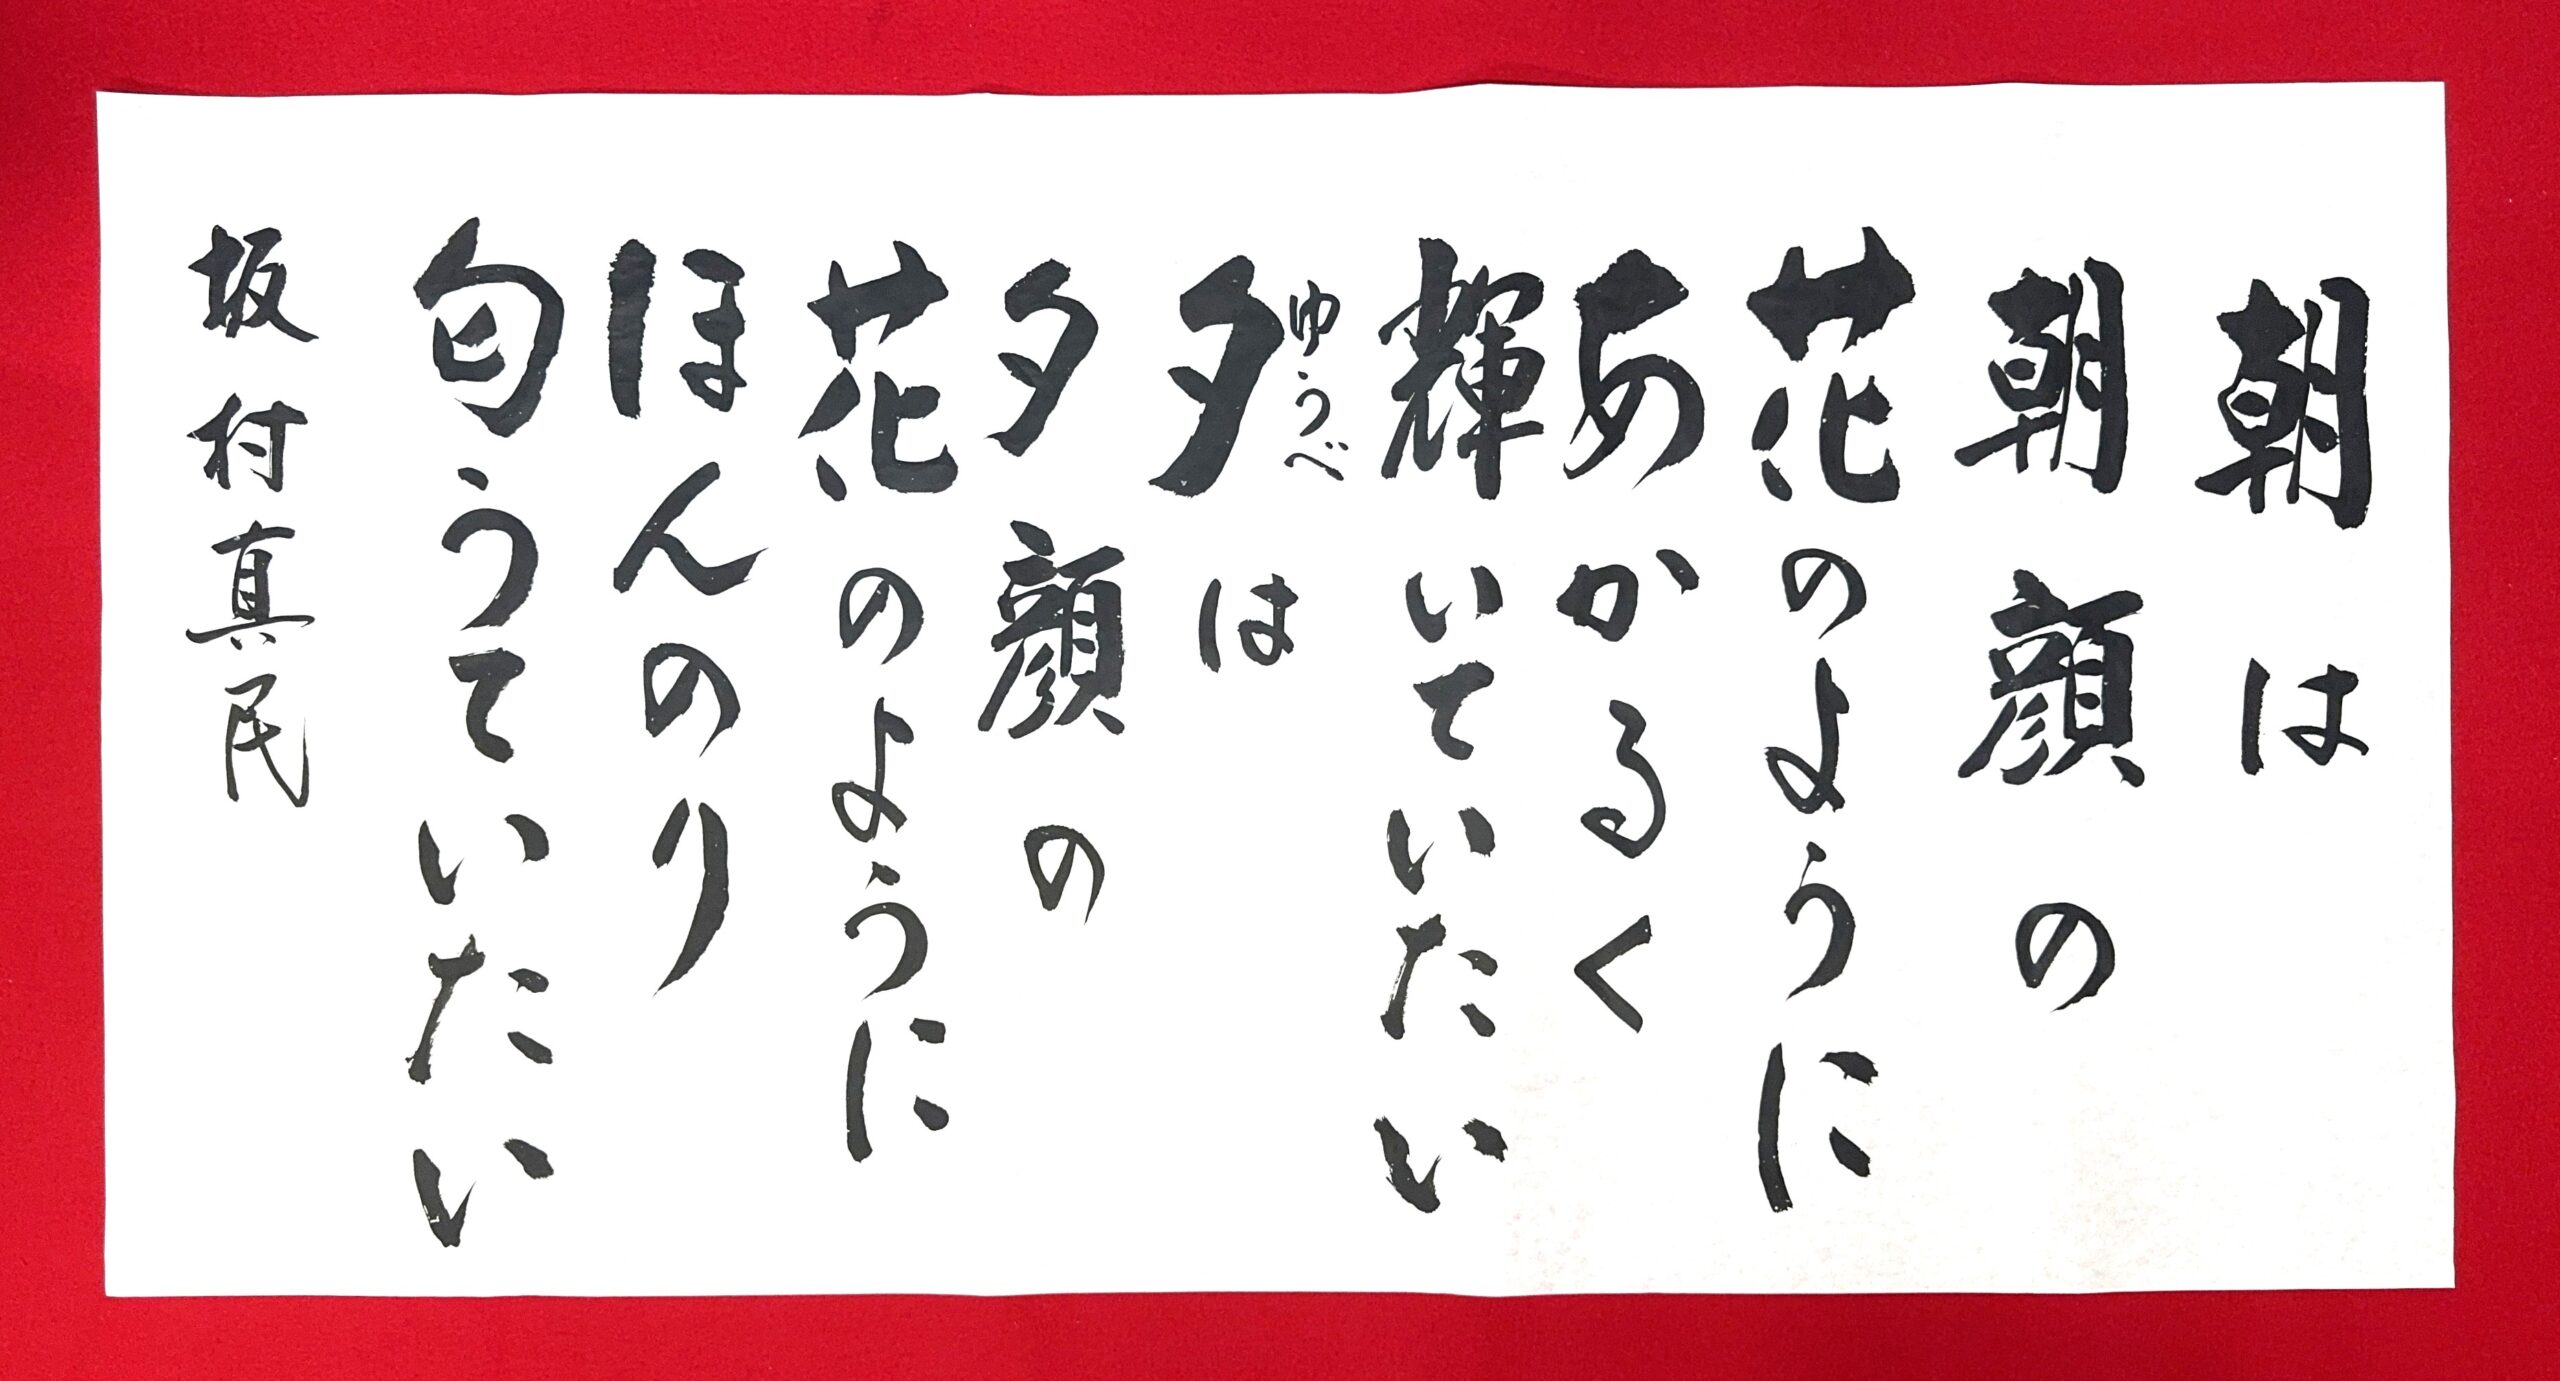 朝は
朝顔の
花のように
あかるく
輝いていたい
夕は
ゆうべ
夕顔の
花のように
ほんのり
匂うていたい
坂村真民